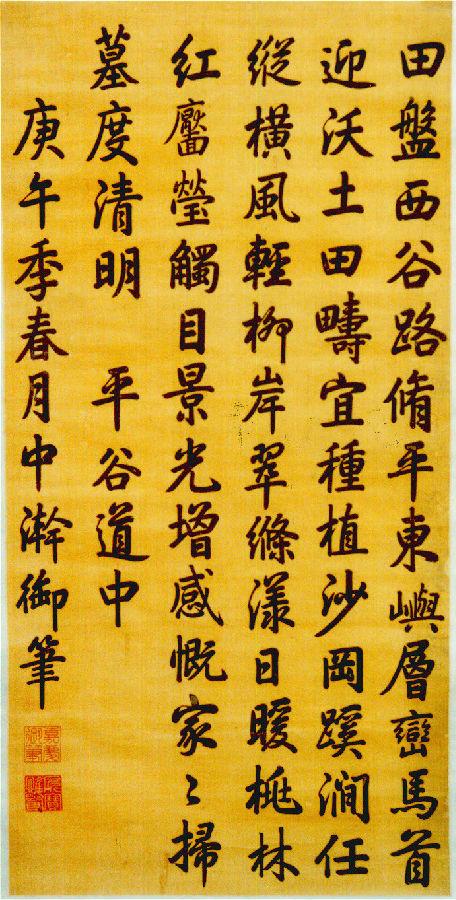 田盤西谷路脩平東嶼層巒馬首
迎沃土田疇宜種植沙岡蹊澗任
縱橫風輕柳岸翠絛漾日暖桃林
紅靨瑩觸目景光增感慨家〻掃
墓度清明　平谷道中
庚午季春月中澣御筆
嘉慶御筆